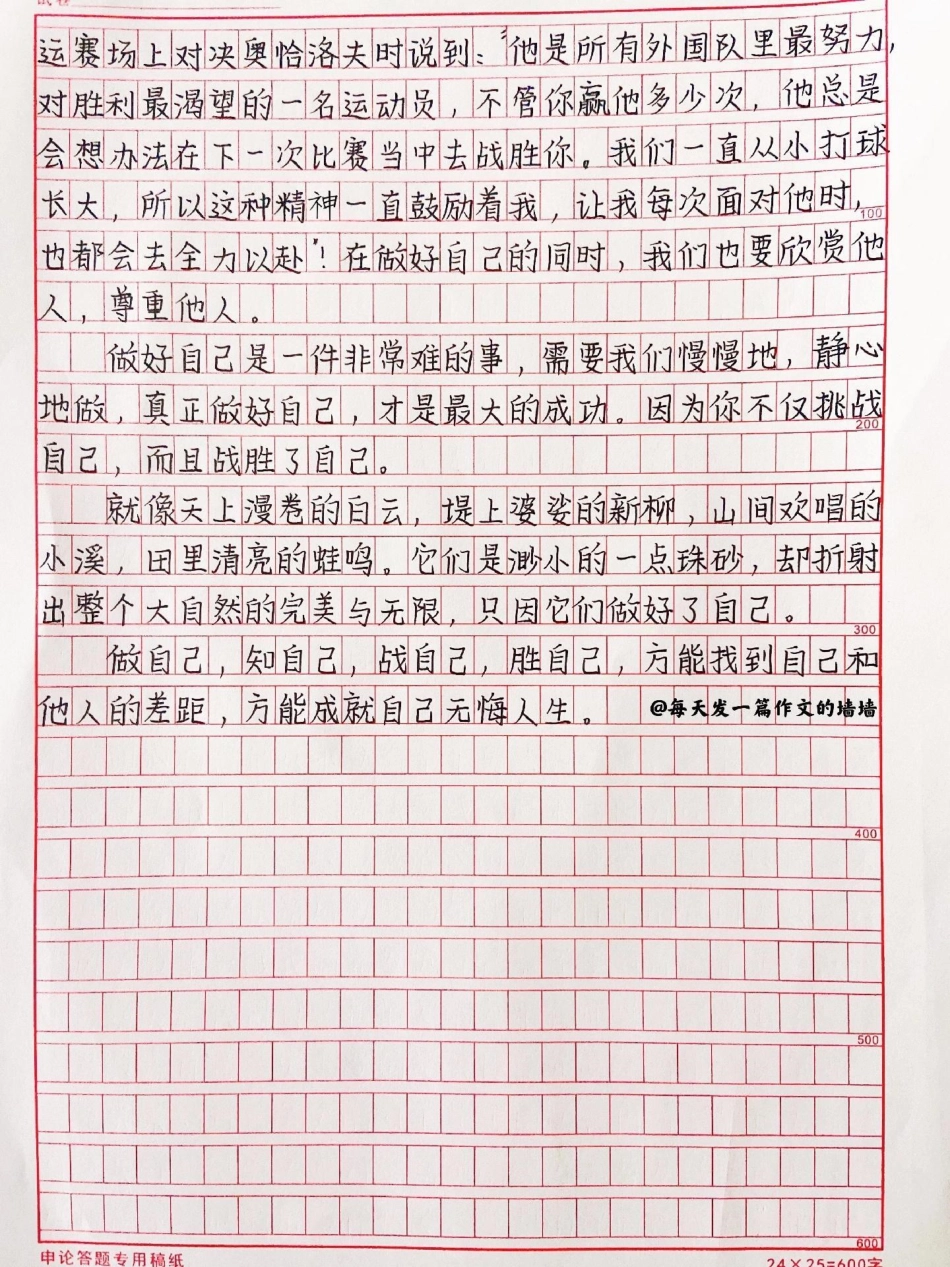 运赛场上对决奥恰洛夫时说到:“他是所有外国队里最努力,
对胜利最渴望的一名运动员,不管你赢他多少次,他总是
会想办法在下一次比赛当中去战胜你。我们一直从小打球
长大,所以这种精神一直鼓励着我,让我每次面对他时,
100
也都会去全力以赴”!在做好自己的同时,我们也要欣赏他
人,尊重他人。
做好自己是一件非常难的事,需要我们慢慢地,静心
地做,真正做好自己,才是最大的成功。因为你不仅挑战
200
自己,而且战胜了自己。
就像天上漫卷的白云,堤上婆娑的新柳,山间欢唱的
小溪,田里清亮的蛙鸣。它们是渺小的一点珠砂,却折射
出整个大自然的完美与无限,只因它们做好了自己。
300
做自己,知自己,战自己,胜自己,方能找到自己和
他人的差距,方能成就自己无悔人生。 @每天发一篇作文的墙墙
400
500
600
申论答题专用稿纸 24×25=600字